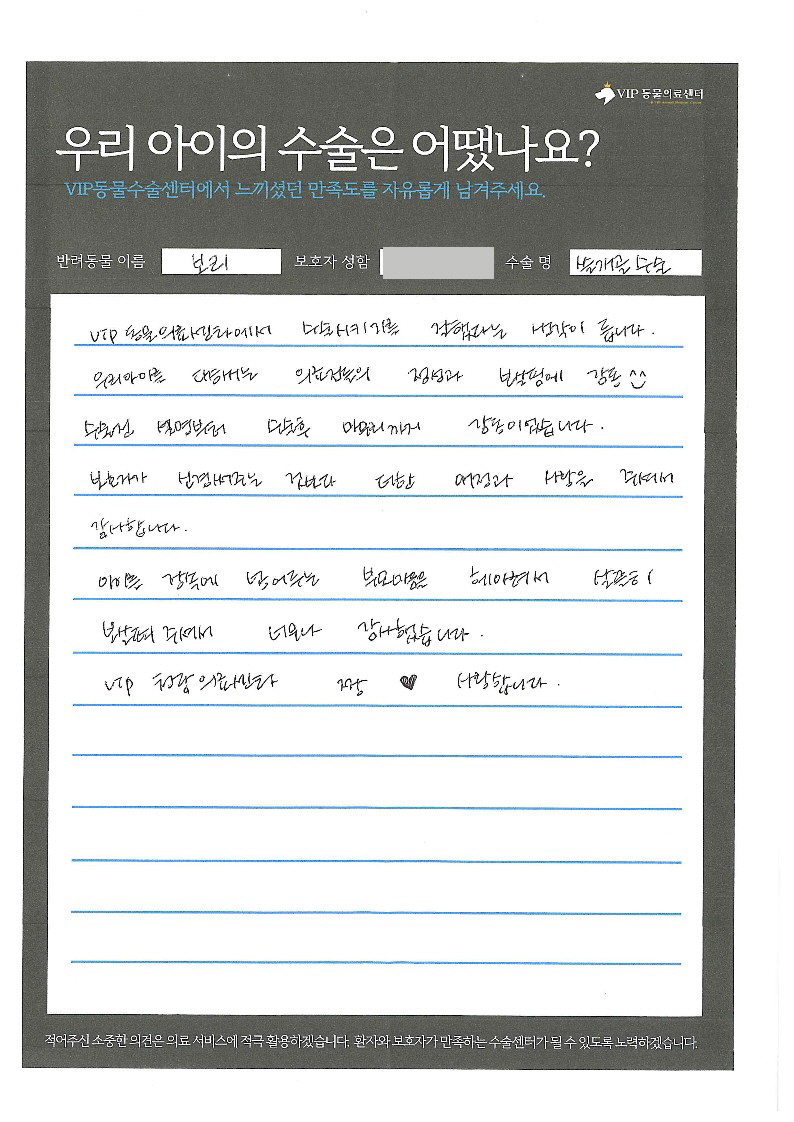 VIP 동물의료센터
우리 아이의 수술은 어땠나요?
VIP동물수술센터에서 느끼셨던 만족도를 자유롭게 남겨주세요.
반려동물 이름 보리 보호자 성함 수술 명 슬개골 수술
VIP 동물의료센터에서 수술시키기를 잘했다는 생각이 듭니다.
우리아이를 대해주는 의료진들의 정성과 보살핌에 감동 ^^
수술전 설명부터 수술후 마무리까지 감동이었습니다.
보호자가 신경써주는 것보다 더한 애정과 사랑을 주셔서
감사합니다.
아이를 병원에 부모마음을 헤아려서 살뜰히
보살펴 주셔서 너무나 감사했습니다.
VIP 청담 의료센터 짱 ♥ 사랑합니다.
적어주신 소중한 의견은 의료 서비스에 적극 활용하겠습니다. 환자와 보호자가 만족하는 수술센터가 될 수 있도록 노력하겠습니다.